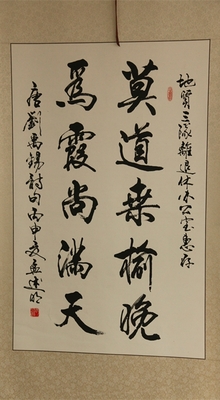 地质三队离退休办公室惠存
莫道桑榆晚
為霞尚满天
唐劉禹錫詩句丙申夏孟建明